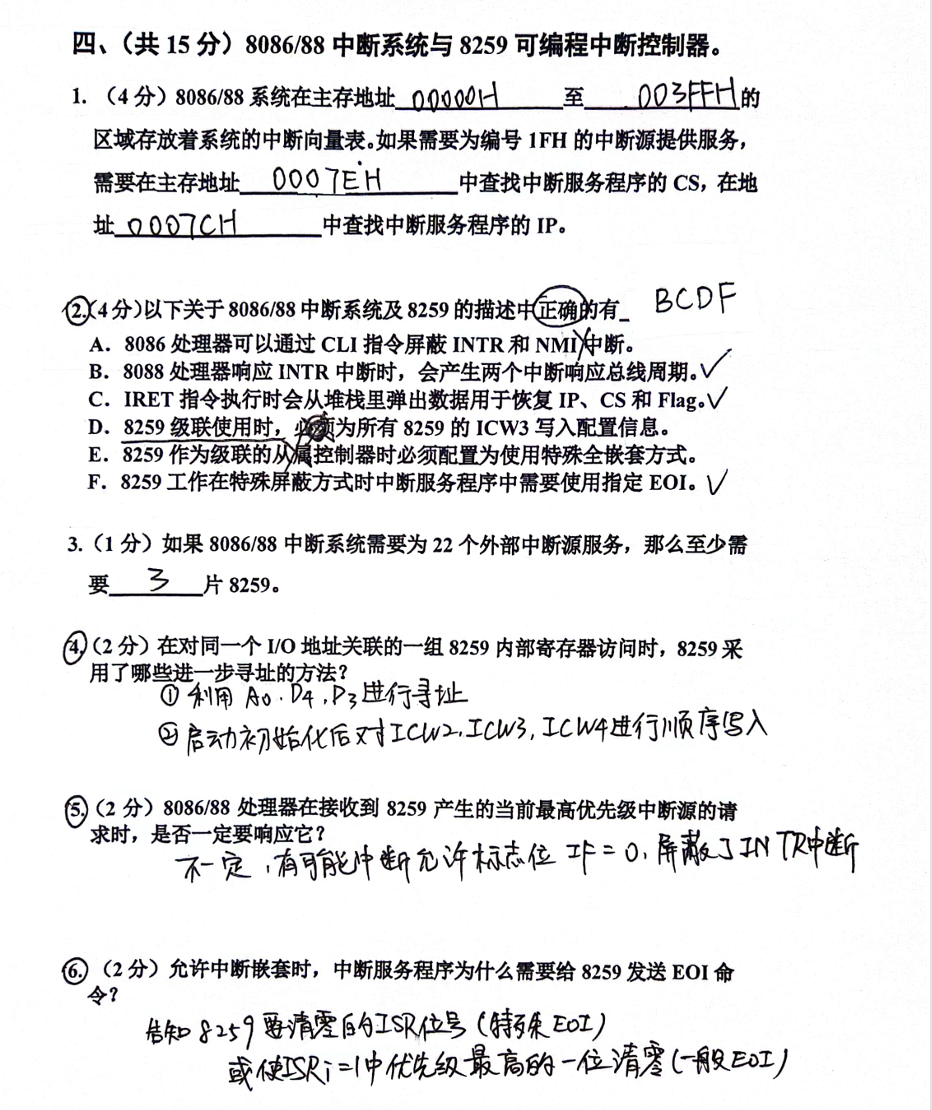 四、（共 15 分）8086/88 中断系统与 8259 可编程中断控制器。
1. （4 分）8086/88 系统在主存地址 00000H 至 003FFH 的
区域存放着系统的中断向量表。如果需要为编号 1FH 的中断源提供服务，
需要在主存地址 0007EH 中查找中断服务程序的 CS，在地
址 0007CH 中查找中断服务程序的 IP。
2.（4 分）以下关于 8086/88 中断系统及 8259 的描述中正确的有_ BCDF
A．8086 处理器可以通过 CLI 指令屏蔽 INTR 和 NMI 中断。
B．8088 处理器响应 INTR 中断时，会产生两个中断响应总线周期。✓
C．IRET 指令执行时会从堆栈里弹出数据用于恢复 IP、CS 和 Flag。✓
D．8259 级联使用时，必须为所有 8259 的 ICW3 写入配置信息。
E．8259 作为级联的从属控制器时必须配置为使用特殊全嵌套方式。
F．8259 工作在特殊屏蔽方式时中断服务程序中需要使用指定 EOI。✓
3.（1 分）如果 8086/88 中断系统需要为 22 个外部中断源服务，那么至少需
要 3 片 8259。
4.（2 分）在对同一个 I/O 地址关联的一组 8259 内部寄存器访问时，8259 采
用了哪些进一步寻址的方法？
① 利用 A0、D4、D3 进行寻址
② 启动初始化后对 ICW2, ICW3, ICW4 进行顺序写入
5.（2 分）8086/88 处理器在接收到 8259 产生的当前最高优先级中断源的请
求时，是否一定要响应它？
不一定，有可能中断允许标志位 IF = 0，屏蔽了 INTR 中断
6.（2 分）允许中断嵌套时，中断服务程序为什么需要给 8259 发送 EOI 命
令？
告知 8259 要清零的 ISR 位号（特殊 EOI）
或使 ISRi = 1 中优先级最高的一位清零（一般 EOI）